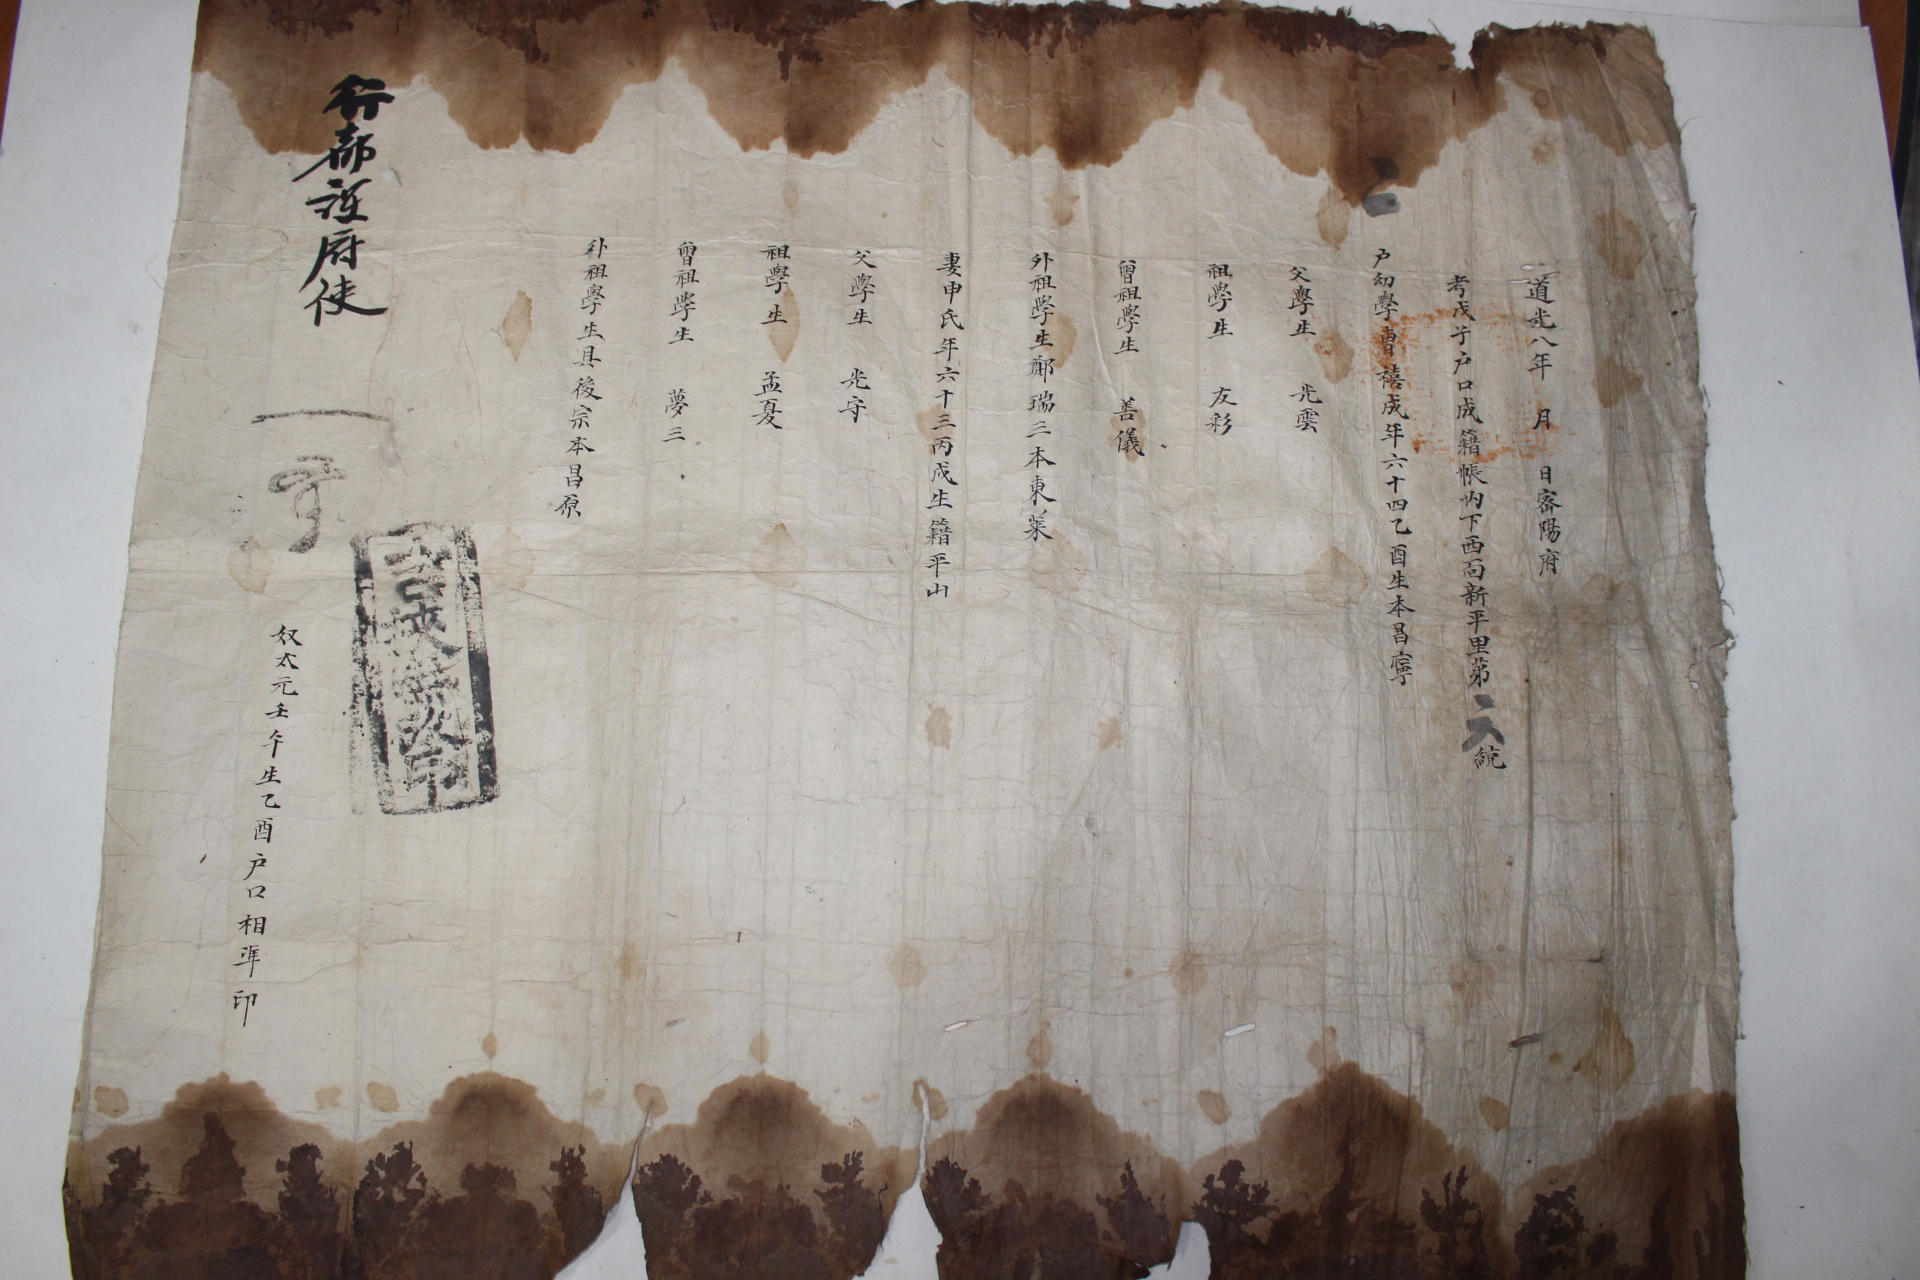 道光八年 月 日密陽府
考戊子戶口成籍帳內下西面新平里第
統
戶幼學曺禧成年六十四乙酉生本昌寧
父學生 光雲
祖學生 友彩
曾祖學生 善儀
外祖學生鄭瑞三本東萊
妻申氏年六十三丙戌生籍平山
父學生 光守
祖學生 孟夏
曾祖學生 夢三
外祖學生具後宗本昌原
行都護府使
奴太元壬午生乙酉戶口相準印